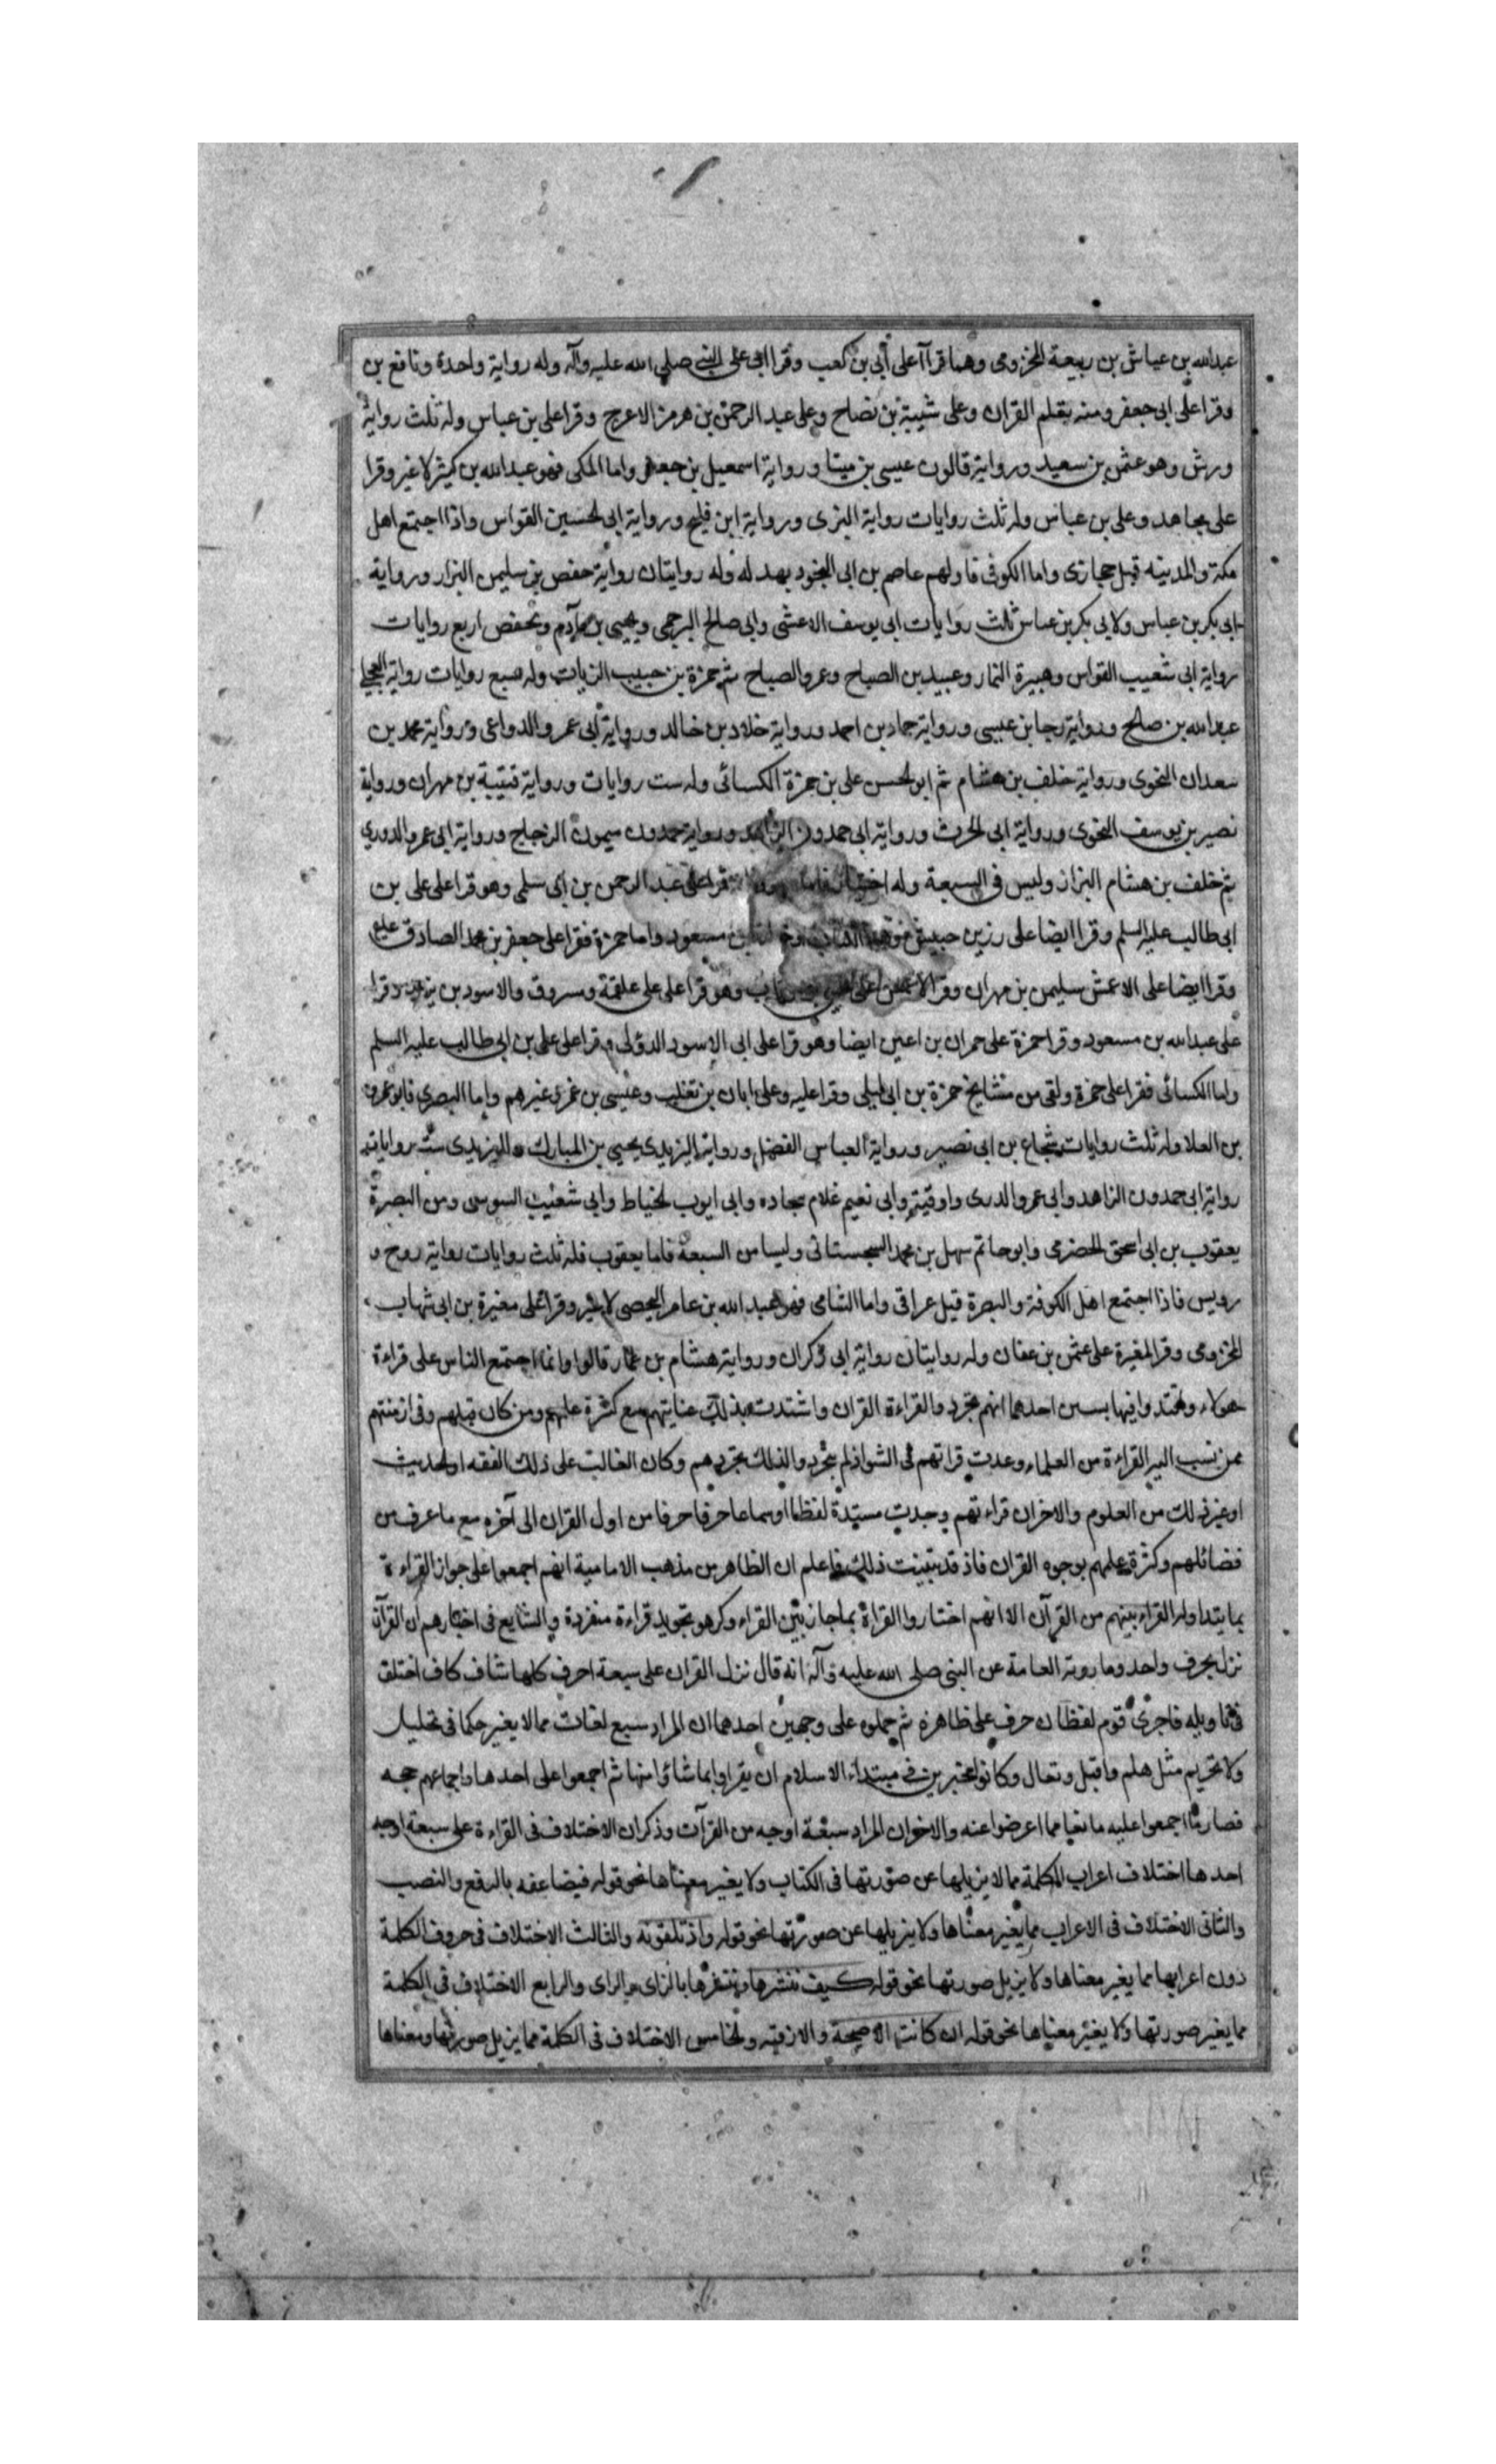 عبدالله بن عياش بن ربيعة المخزومى وهما قراآ على أبي بن كعب وقرا ابى على النبى صلى الله عليه وآله وله رواية واحدة ونافع بن
وقرا على ابى جعفر ومنه يقلم القران وعلى شيبة بن نصاح وعلى عبد الرحمن بن هرمز الاعرج وقرا على بن عباس وله ثلث رواية
ورش وهو عثمن بن سعيد ورواية قالون عيسى بن مينا ورواية اسمعيل بن جعفر واما المكى فهو عبدالله بن كثير لا غير وقرا
على مجاهد وعلى بن عباس وله ثلث روايات رواية البزى ورواية ابن فليح ورواية ابى الحسين القواس واذا اجتمع اهل
مكة والمدينه قيل حجازى واما الكوفى فاولهم عاصم بن ابى النجود بهدله وله روايتان رواية حفص بن سليمن البزار ورواية
ابى بكر بن عباس ولابى بكر بن عباس ثالث روايات ابى يوسف الاعشى وابى صالح البرجمى ويحيى بن آدم ولحفص اربع روايات
رواية ابى شعيب القواس وهبيرة التمار وعبيد بن الصباح وعمرو الصباح ثم حمزة بن حبيب الزيات وله سبع روايات رواية العجلى
عبدالله بن صلح ورواية رجا بن عيسى ورواية حماد بن احمد ورواية خلاد بن خالد ورواية أبى عمرو الدواعى ورواية محمد بن
سعدان النحوى ورواية خلف بن هشام ثم ابو الحسن على بن حمزة الكسائى وله ست روايات ورواية قتيبة بن مهران ورواية
نصير بن يوسف النحوى ورواية ابى الحرث ورواية ابى حمدون الزاهد ورواية حمدون سيمون الزجاج ورواية ابى عمرو الدورى
ثم خلف بن هشام البزاز وليس فى السبعة وله اختيار فاما قرا على عبد الرحمن بن ابى سلمى وهو قرا على على بن
ابى طالب عليه السلم وقرا ايضا على رزين حبيش مسعود واما حمزة فقرا على جعفر بن محمد الصادق عليه
وقرا ايضا على الاعمش سليمن بن مهران وقرا الاعمش على وهو قرا على على علقمة ومسروق والاسود بن يزيد وقرا
على عبدالله بن مسعود وقرا حمزة على حمران بن اعين ايضا وهو قرا على ابى الاسود الدؤلى وقرا على على بن ابى طالب عليه السلم
واما الكسائى فقرا على حمزة ولقى من مشايخ حمزة بن ابى ليلى وقرا عليه وعلى ابان بن تغلب وعيسى بن عمر وغيرهم واما البصرى فابو عمرو
بن العلا وله ثلث روايات شجاع بن ابى نصير ورواية العباس الفضل ورواية اليزيدى يحيى بن المبارك ولليزيدى ست رواياته
رواية ابى حمدون الزاهد وابى عمرو الدرى واوقية وابى نعيم غلام سجاده وابى ايوب الخياط وابى شعيب السوسى ومن البصرة
يعقوب بن ابى اسحق الحضرمى وابو حاتم سهل بن محمد السجستانى وليسا من السبعة فاما يعقوب فله ثلث روايات رواية روح و
رويس فاذا اجتمع اهل الكوفة والبصرة قيل عراقى واما الشامى فهو عبد الله بن عامر اليحصبى لا غير وقرا على مغيرة بن ابى شهاب
المخزومى وقرا المغيرة على عثمن بن عفان وله روايتان رواية ابى ذكران ورواية هشام بن عمار قالوا وانما اجتمع الناس على قراءة
هولاء وافيها بسبين احدهما انهم تجردوا لقراءة القران واشتدت بذلك عنايتهم مع كثرة علمهم ومن كان قبلهم وفى ازمنتهم
ممن نسب اليه القراءة من العلماء وعدت قراتهم فى الشواذ لم يتجرد والذلك تجردهم وكان الغالب على ذلك الفقه او الحديث
او غير ذلك من العلوم والاخران قراءتهم وجدت مسندة لفظا اوسماعا حرفا حرفا من اول القران الى آخره مع ما عرف من
فضائلهم وكثرة علمهم بوجوه القران فاذ قد تبينت ذلك فاعلم ان الظاهر من مذهب الامامية انهم اجمعوا على جواز القراءة
بما يتداوله القراء بينهم من القرآن الا انهم اختاروا القراة بما جاز بين القراء وكرهو تجويد قراءة منفردة والشايع فى اخبارهم ان القرآن
نزل بحرف واحد وما روته العامة عن النبى صلى الله عليه وآله انه قال نزل القران على سبعة احرف كلها شاف كاف اختلق
فى تاويله فاجرى قوم لفظان حرف على ظاهره ثم حملوه على وجهين احدهما ان المراد سبع لغات مما لا يغير حكما فى تحليل
ولا تحريم مثل هلم واقبل وتعال وكانوا مخبرين فى مبتداء الاسلام ان يقراوا بما شاؤا منها ثم اجمعوا على احدها واجماعهم حجه
فصار ما اجمعوا عليه مانعا مما اعرضوا عنه والاخوان المراد سبعة اوجه من القرآت وذكران الاختلاف فى القراءة على سبعة اوجه
احدها اختلاف اعراب الكلمة مما لا يزيلها عن صورتها فى الكتاب ولا يغير معناها نحو قوله فيضاعفه بالرفع والنصب
والثانى الاختلاف فى الاعراب مما يغير معناها ولا يزيلها عن صورتها نحو قوله واذ تلقونه والثالث الاختلاف فى حروف الكلمة
دون اعرابها مما يغير معناها ولا يزيل صورتها نحو قوله كيف ننشزها وننشرها بالزاى والراى والرابع الاختلاف فى الكلمة
مما يغير صورتها ولا يغير معناها نحو قوله ان كانت الا صيحة والازقيه والخامس الاختلاف فى الكلمة مما يزيل صورتها ومعناها